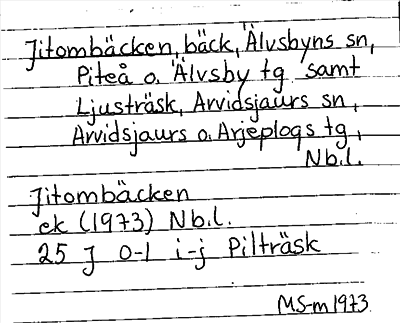 Jitombäcken, bäck, Älvsbyns sn,
Piteå o. Älvsby tg samt
Ljusträsk, Arvidsjaurs sn,
Arvidsjaurs o. Arjeplogs tg,
Nb.l.
Jitombäcken
ek (1973) Nb.l.
25 J 0-1 i-j Pilträsk
MS-m 1973